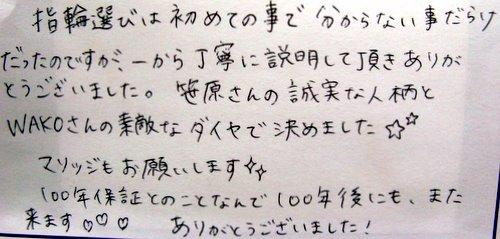 指輪選びは初めての事で分からない事だらけ
だったのですが、一から丁寧に説明して頂きありが
とうございました。笹原さんの誠実な人柄と
WAKOさんの素敵なダイヤで決めました☆☆
マリッジもお願いします☆☆
100年保証とのことなんで100年後にも、また
来ます♡♡♡ ありがとうございました!